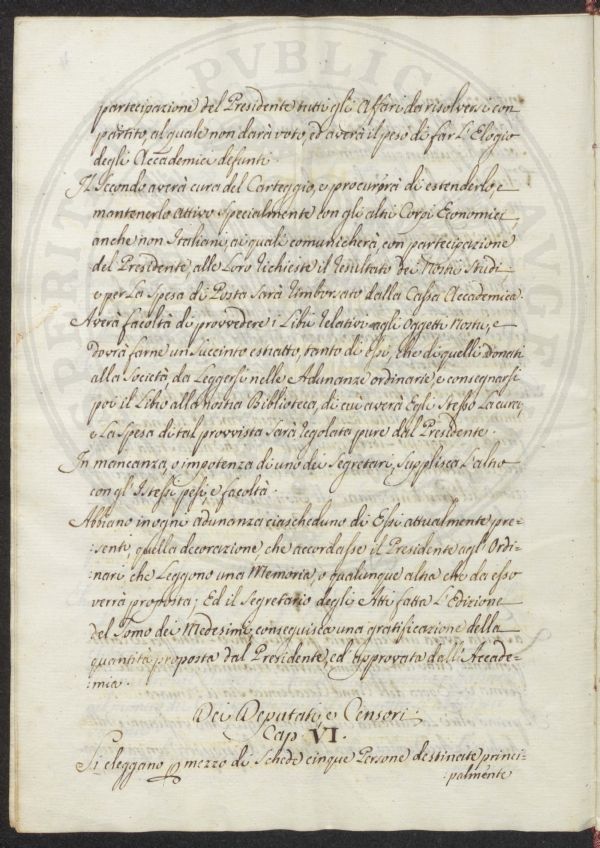 partecipazione del Presidente tutti gli Affari da risolversi con
partito, al quale non darà voto, ed averà il peso di far l'Elogio
degli Accademici defunti.
Il Secondo averà cura del Carteggio, e procurerà di estenderlo, e
mantenerlo attivo specialmente con gli altri Corpi Economici,
anche non Italiani, ai quali comunicherà, con partecipazione
del Presidente, alle Loro richieste il resultato dei Nostri Studi
e per La Spesa di Posta sarà rimborsato dalla Cassa Accademica.
Averà facoltà di provvedere i Libri relativi agli Oggetti Nostri, e
dovrà farne un Succinto estratto, tanto di essi, che di quelli donati
alla Società, da Leggersi nelle Adunanze ordinarie, e consegnarsi
poi il Libro alla nostra Biblioteca, di cui averà Egli Stesso La cura,
e La Spesa di tal provvista sarà regolata pure dal Presidente.
In mancanza, o impotenza di uno dei Segretari, Supplisca L'altro
con gl'Istessi pesi, e facoltà.
Abbiano in ogni adunanza ciascheduno di Essi attualmente pre=
:senti, quella decorazione, che accordasse il Presidente agl'Ordi=
nari, che Leggono una Memoria, o qualunque altra che da esso
verrà proposta; Ed il Segretario degli Atti fatta L'Edizione
del Tomo dei Medesimi, conseguisca una gratificazione della
quantità proposta dal Presidente, ed approvata dall'Accade=
:mia.
Dei Deputati, e Censori.
Cap. VI.
Si eleggano p mezzo di Schede cinque Persone destinate princi=
:palmente
PVBLIC